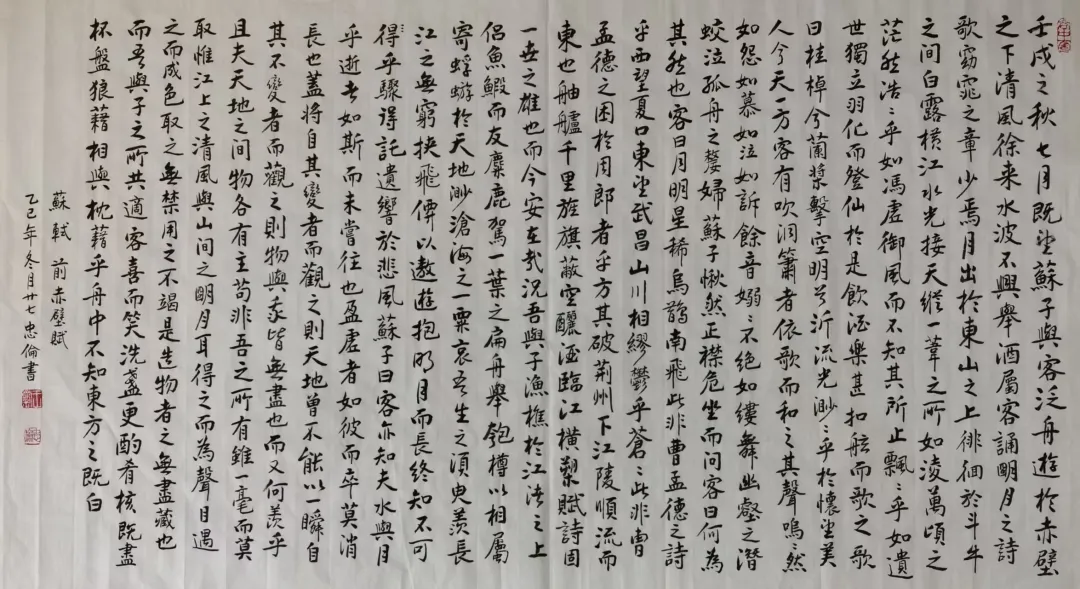 壬戌之秋七月既望蘇子與客泛舟遊於赤壁
之下清風徐来水波不興舉酒屬客誦明月之詩
歌窈窕之章少焉月出於東山之上徘徊於斗牛
之間白露橫江水光接天縱一葦之所如凌萬頃之
茫然浩〻乎如馮虛御風而不知其所止飄〻乎如遺
世獨立羽化而登仙於是飲酒樂甚扣舷而歌之歌
曰桂棹兮蘭槳擊空明兮泝流光渺〻乎於懷望美
人兮天一方客有吹洞簫者依歌而和之其聲嗚〻然
如怨如慕如泣如訴餘音嫋〻不絕如縷舞幽壑之潛
蛟泣孤舟之嫠婦蘇子愀然正襟危坐而问客曰何為
其然也客曰月明星稀烏鵲南飛此非曹孟德之詩
乎西望夏口東望武昌山川相繆鬱乎蒼〻此非曹
孟德之困於周郎者乎方其破荊州下江陵順流而
東也舳艫千里旌旗蔽空釃酒臨江橫槊賦詩固
一世之雄也而今安在哉況吾與子漁樵於江渚之上
侶魚鰕而友麋鹿駕一葉之扁舟舉匏樽以相屬
寄蜉蝣於天地渺滄海之一粟哀吾生之須臾羨長
江之無窮挾飛僊以遨遊抱明月而長終知不可
得乎驟得託遺響於悲風蘇子曰客亦知夫水與月
乎逝者如斯而未嘗往也盈虛者如彼而卒莫消
長也蓋將自其變者而觀之則天地曾不能以一瞬自
其不變者而觀之則物與我皆無盡也而又何羨乎
且夫天地之間物各有主苟非吾之所有雖一毫而莫
取惟江上之清風與山間之明月耳得之而為聲目遇
之而成色取之無禁用之不竭是造物者之無盡藏也
而吾與子之所共適客喜而笑洗盞更酌肴核既盡
杯盤狼藉相與枕藉乎舟中不知東方之既白
蘇軾前赤壁賦
乙巳年冬月廿七忠倫書